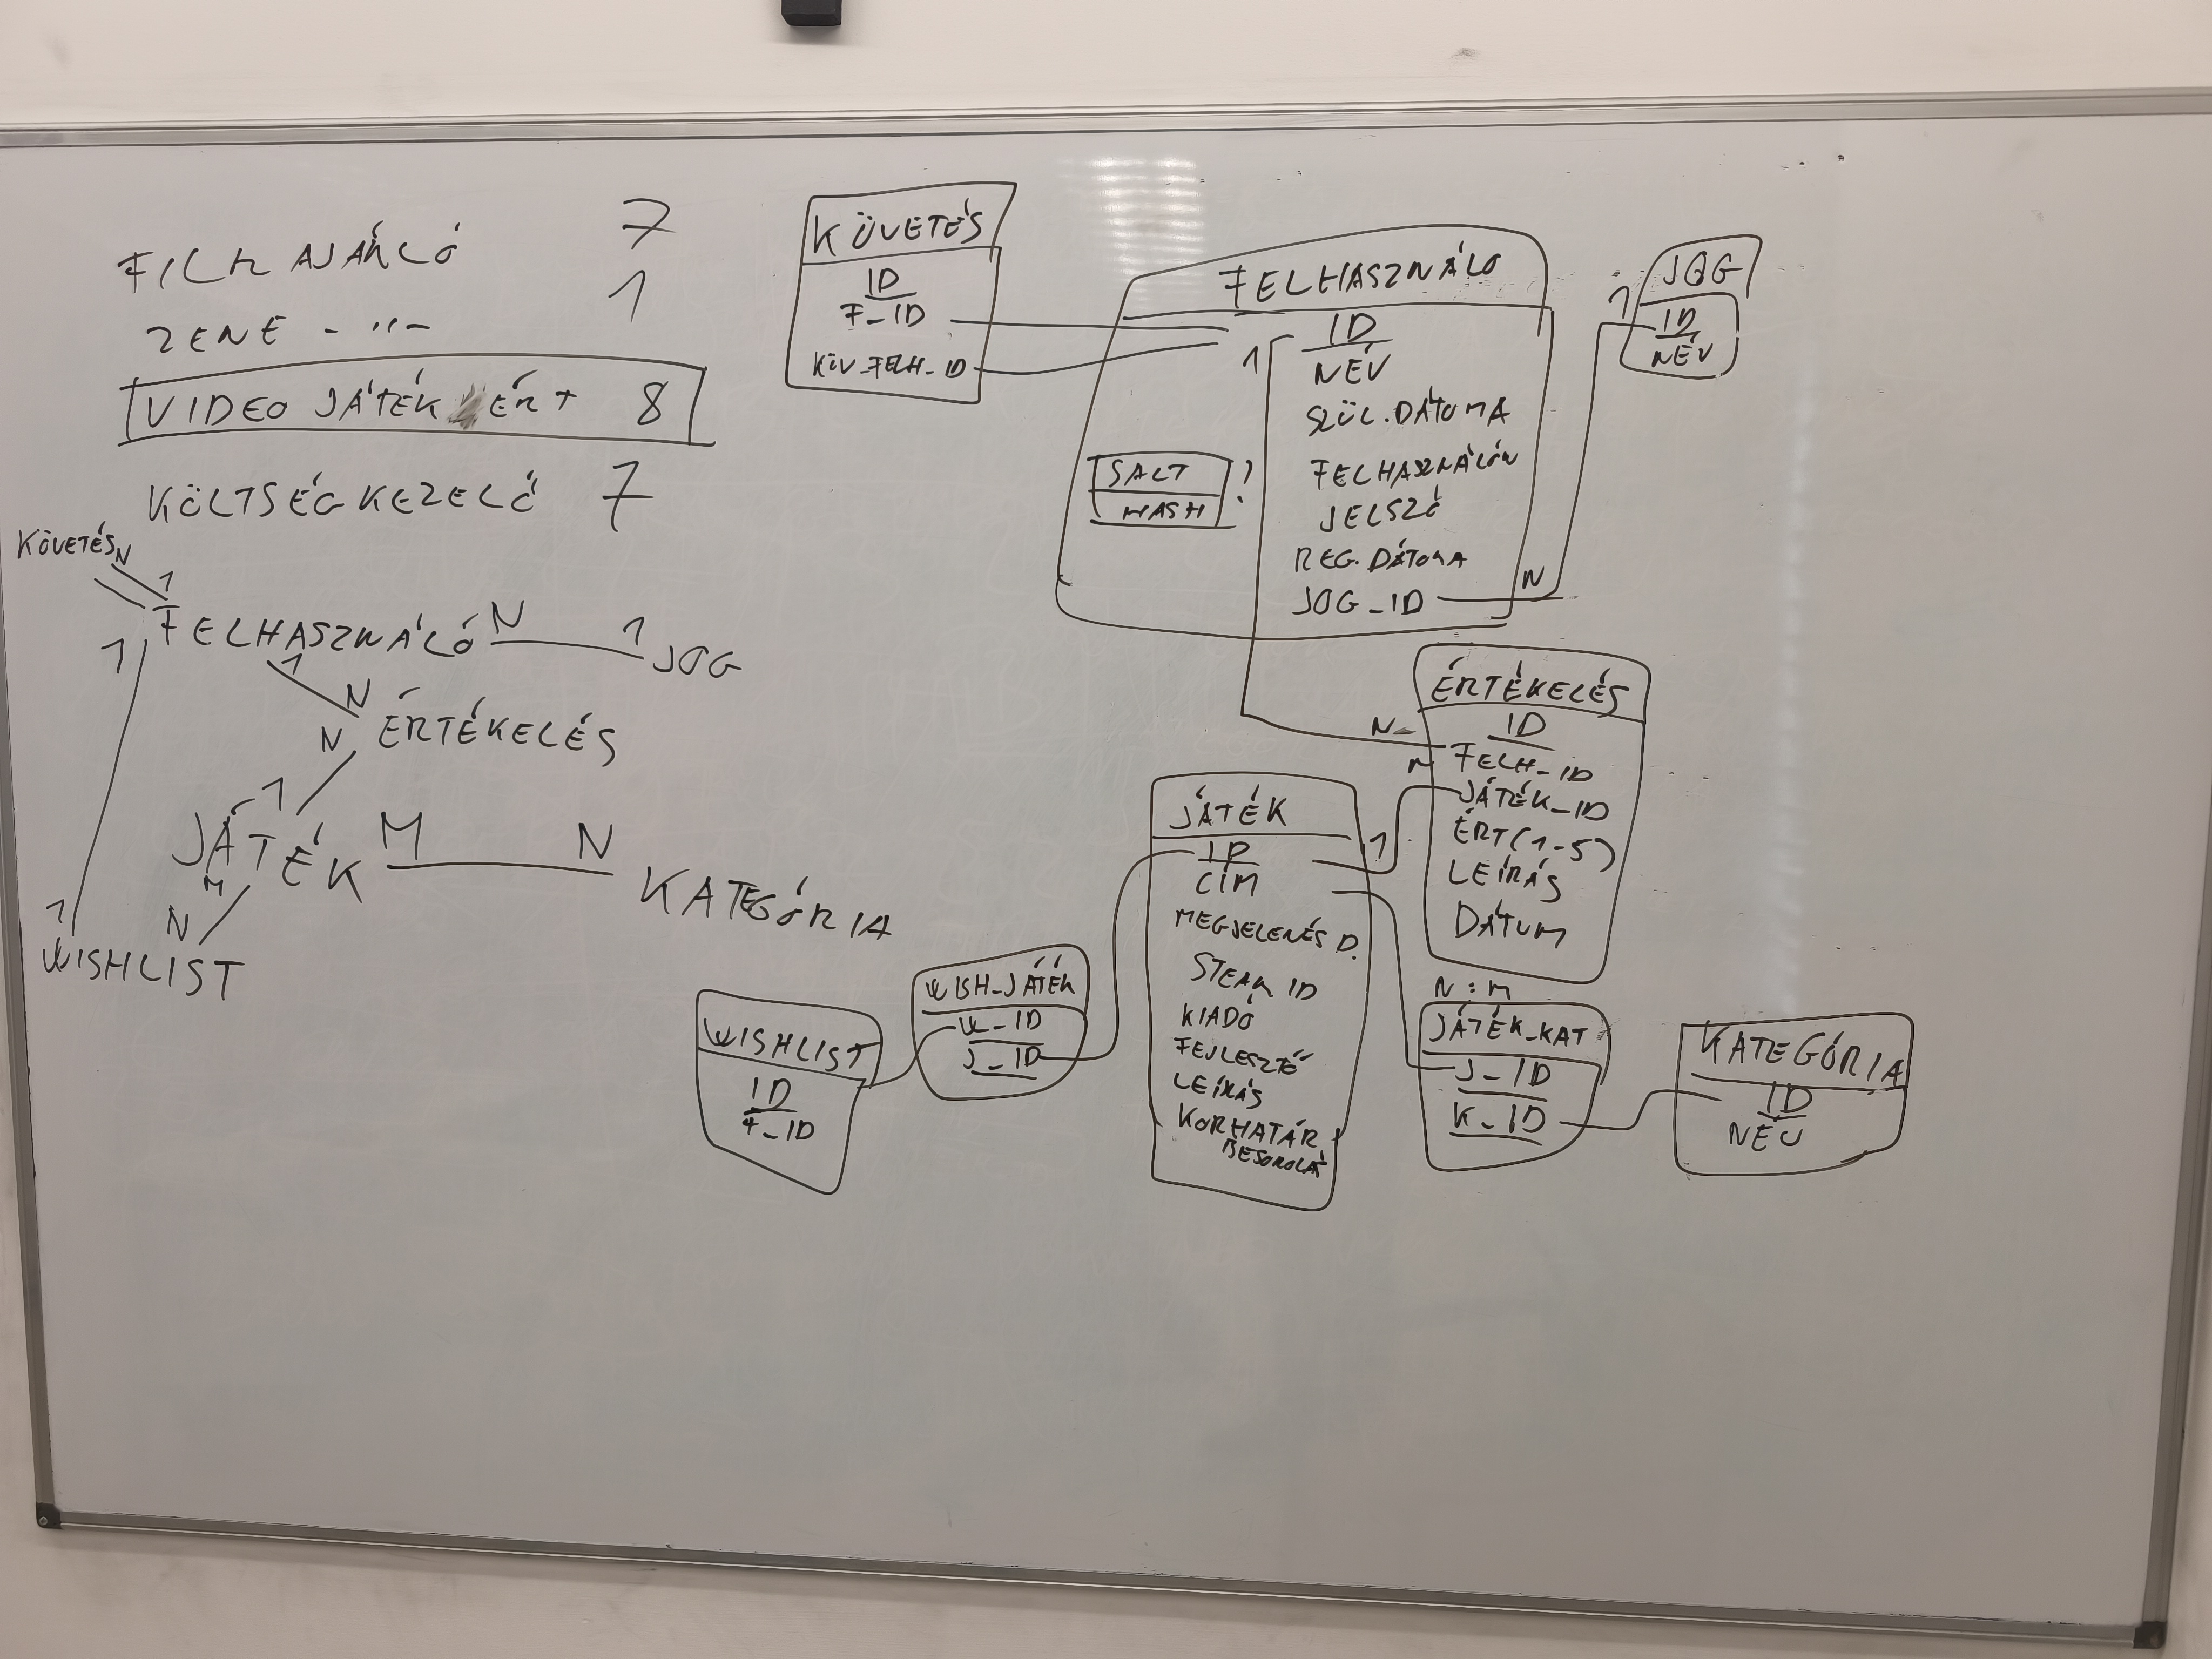 FILM AJÁNLÓ 7
ZENE - "- 1
VIDEO JÁTÉK ÉRT 8
KÖLTSÉGKEZELŐ 7
KÖVETÉS N
1
FELHASZNÁLÓ N 1 JOG
1
1
N
N ÉRTÉKELÉS
1
JÁTÉK M N KATEGÓRIA
M
N
1
WISHLIST
KÖVETÉS
ID
F_ID
KÖV_FELH_ID
FELHASZNÁLÓ
ID
1
NÉV
SZÜL.DÁTUMA
FELHASZNÁLÓN
JELSZÓ
REG.DÁTUMA
JOG_ID N
SALT
HASH
!
JOG
1
ID
NÉV
ÉRTÉKELÉS
ID
N
FELH_ID
N
JÁTÉK_ID
ÉRT(1-5)
LEÍRÁS
DÁTUM
JÁTÉK
ID
1
CÍM
MEGJELENÉS D.
STEAM ID
KIADÓ
FEJLESZTŐ
LEÍRÁS
KORHATÁR
BESOROLÁ
WISH_JÁTÉK
W_ID
J_ID
WISHLIST
ID
F_ID
N:M
JÁTÉK_KAT
J_ID
K_ID
KATEGÓRIA
ID
NÉV